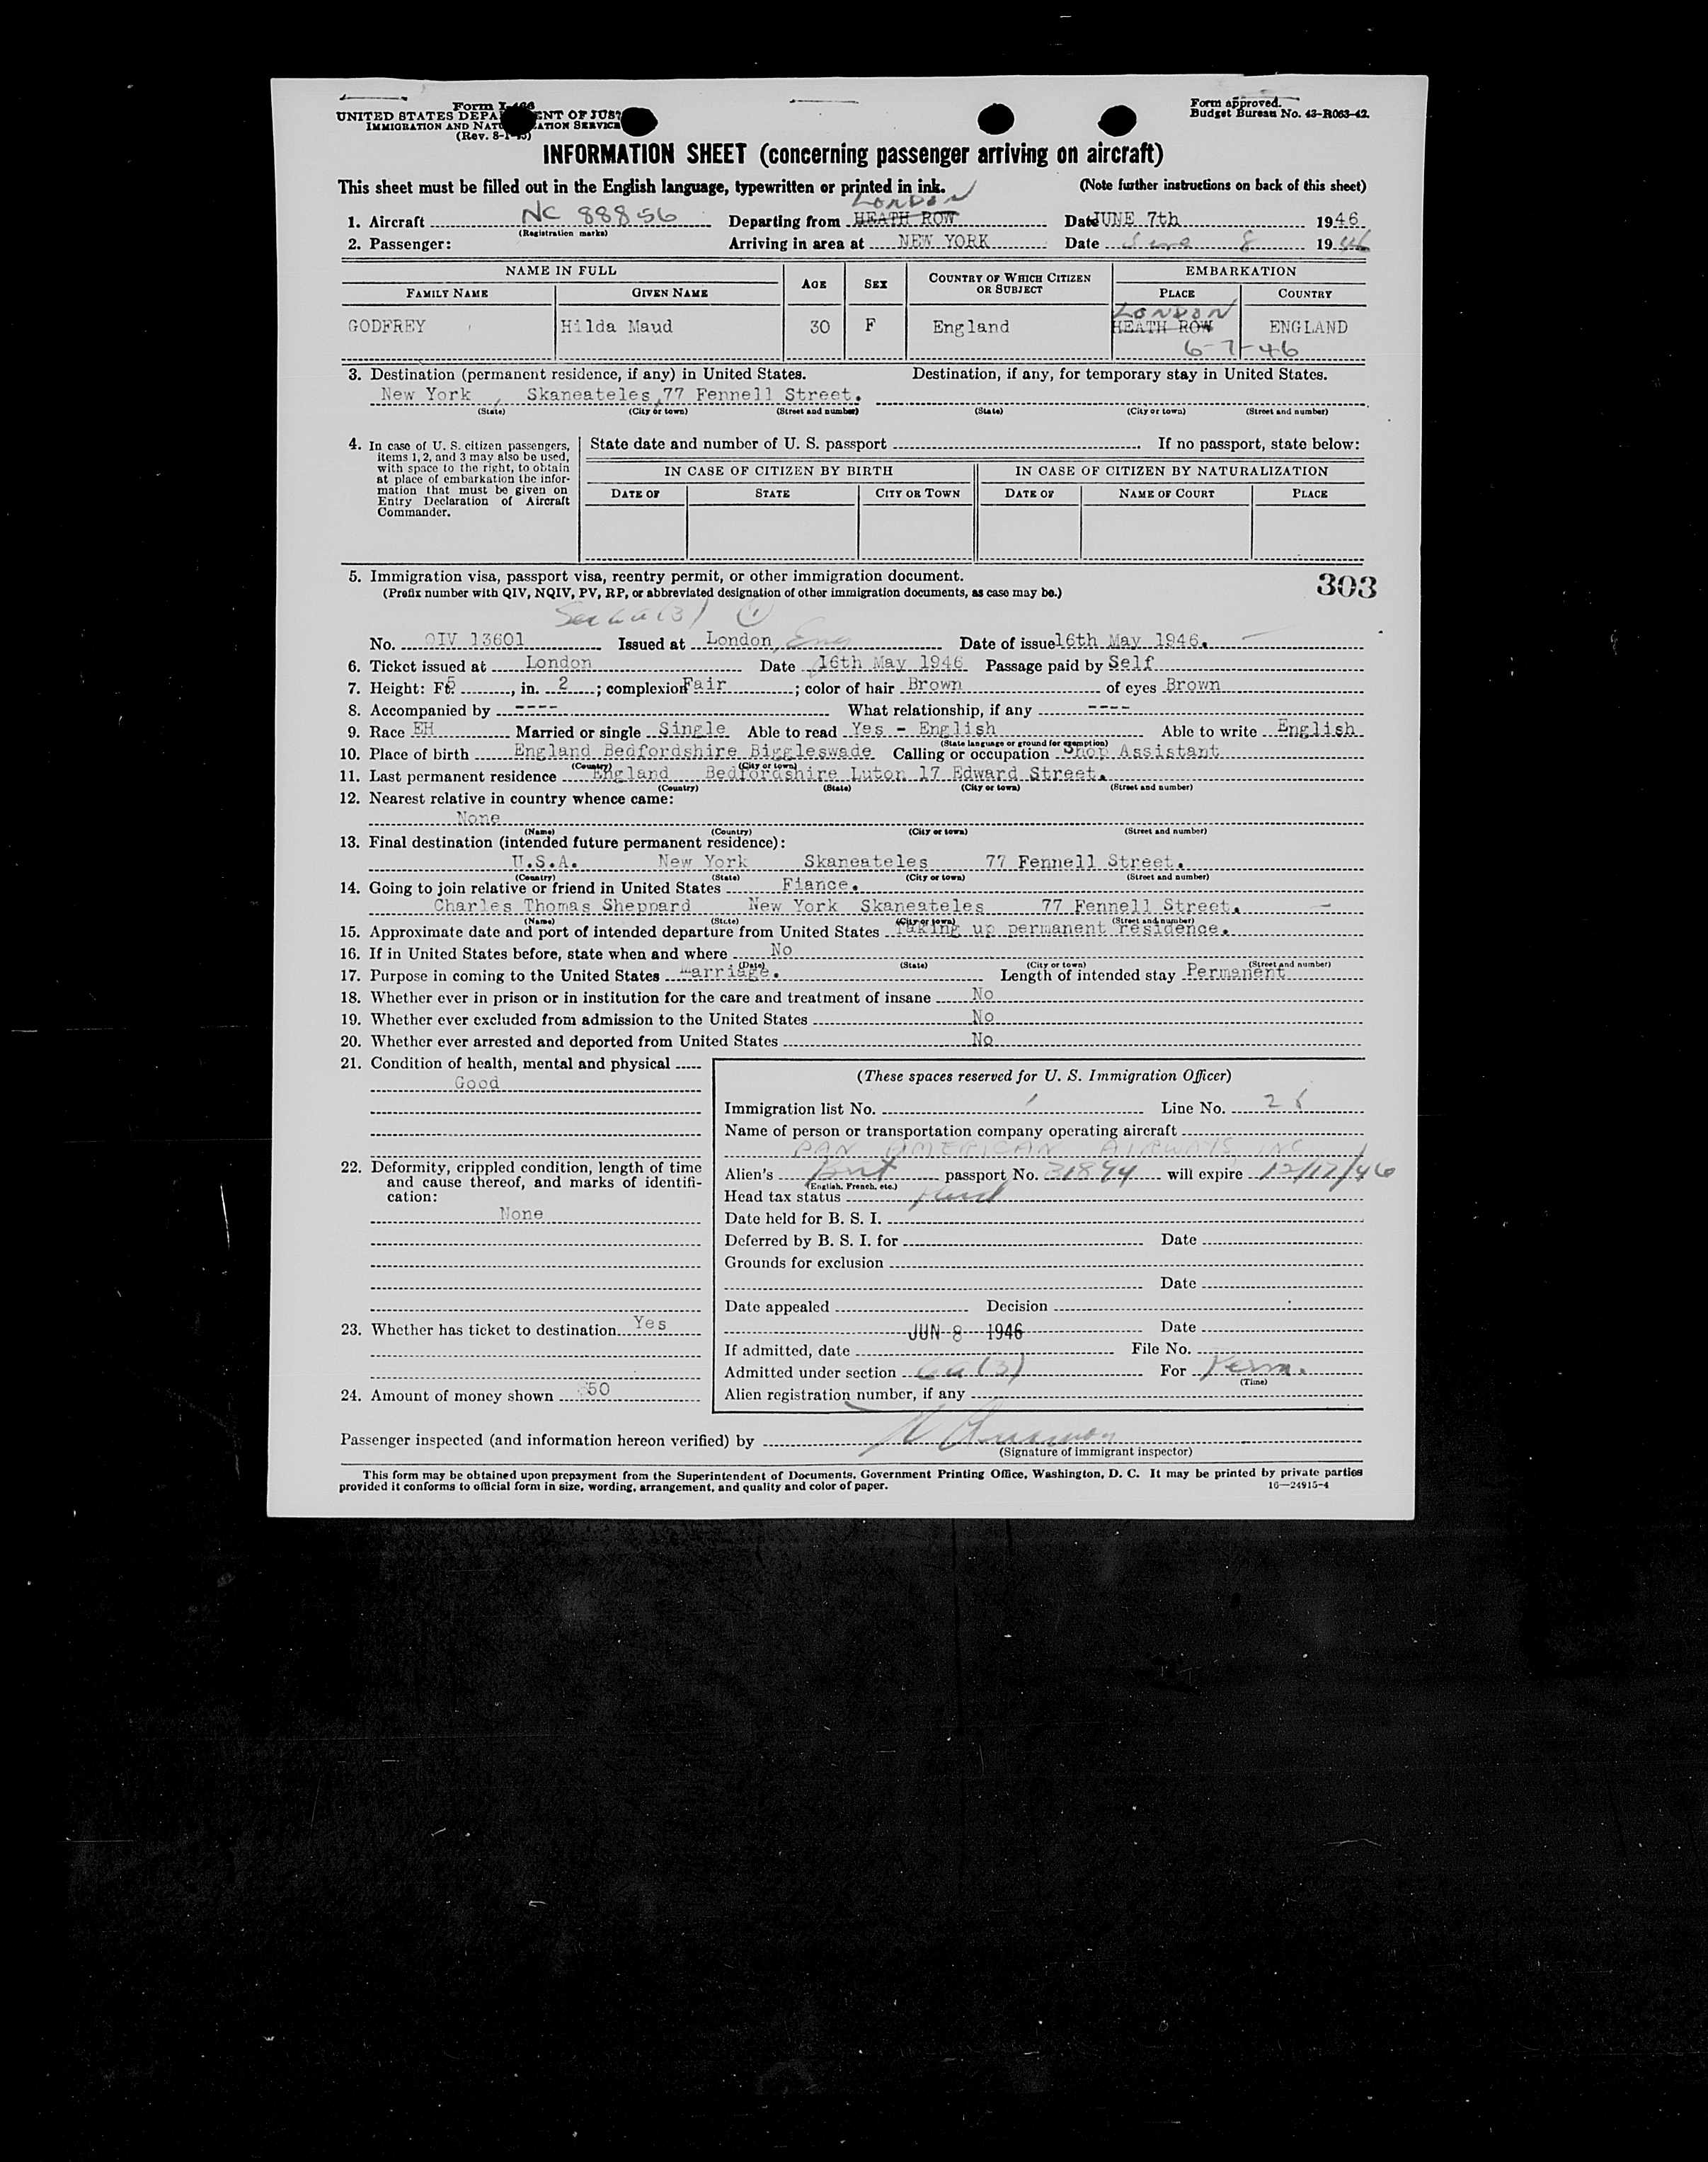 Form I-466
UNITED STATES DEPARTMENT OF JUSTICE
IMMIGRATION AND NATURALIZATION SERVICE
(Rev. 8-1-45)
Form approved.
Budget Bureau No. 43-R063-42.
INFORMATION SHEET (concerning passenger arriving on aircraft)
This sheet must be filled out in the English language, typewritten or printed in ink. (Note further instructions on back of this sheet)
LONDON
1. Aircraft NC 88856 Departing from HEATH ROW Date JUNE 7th 1946
(Registration marks)
2. Passenger: Arriving in area at NEW YORK Date June 8 1946
NAME IN FULL AGE SEX COUNTRY OF WHICH CITIZEN OR SUBJECT EMBARKATION
FAMILY NAME GIVEN NAME PLACE COUNTRY
LONDON
GODFREY Hilda Maud 30 F England HEATH ROW ENGLAND
6-7-46
3. Destination (permanent residence, if any) in United States. Destination, if any, for temporary stay in United States.
New York , Skaneateles, 77 Fennell Street.
(State) (City or town) (Street and number) (State) (City or town) (Street and number)
4. In case of U. S. citizen passengers, items 1, 2, and 3 may also be used, with space to the right, to obtain at place of embarkation the information that must be given on Entry Declaration of Aircraft Commander.
State date and number of U. S. passport If no passport, state below:
IN CASE OF CITIZEN BY BIRTH IN CASE OF CITIZEN BY NATURALIZATION
DATE OF STATE CITY OR TOWN DATE OF NAME OF COURT PLACE
5. Immigration visa, passport visa, reentry permit, or other immigration document.
(Prefix number with QIV, NQIV, PV, RP, or abbreviated designation of other immigration documents, as case may be.)
303
Sec 6a(3) (1)
No. QIV 13601 Issued at London, Eng Date of issue 16th May 1946.
6. Ticket issued at London Date 16th May 1946 Passage paid by Self
7. Height: Ft. 5, in. 2; complexion Fair; color of hair Brown of eyes Brown
8. Accompanied by ---- What relationship, if any ----
9. Race EH Married or single Single Able to read Yes - English Able to write English
(State language or ground for exemption)
10. Place of birth England Bedfordshire Biggleswade Calling or occupation Shop Assistant
(Country) (City or town)
11. Last permanent residence England Bedfordshire Luton 17 Edward Street.
(Country) (State) (City or town) (Street and number)
12. Nearest relative in country whence came:
None
(Name) (Country) (City or town) (Street and number)
13. Final destination (intended future permanent residence):
U.S.A. New York Skaneateles 77 Fennell Street.
(Country) (State) (City or town) (Street and number)
14. Going to join relative or friend in United States Fiance.
Charles Thomas Sheppard New York Skaneateles 77 Fennell Street.
(Name) (State) (City or town) (Street and number)
15. Approximate date and port of intended departure from United States Taking up permanent residence.
16. If in United States before, state when and where No
(Date) (State) (City or town) (Street and number)
17. Purpose in coming to the United States Marriage. Length of intended stay Permanent
18. Whether ever in prison or in institution for the care and treatment of insane No
19. Whether ever excluded from admission to the United States No
20. Whether ever arrested and deported from United States No
21. Condition of health, mental and physical
Good
22. Deformity, crippled condition, length of time and cause thereof, and marks of identification:
None
23. Whether has ticket to destination Yes
24. Amount of money shown 50
(These spaces reserved for U. S. Immigration Officer)
Immigration list No. 1 Line No. 28
Name of person or transportation company operating aircraft
PAN AMERICAN AIRWAYS INC
Alien's Brit passport No. 31894 will expire 12/17/46
(English, French, etc.)
Head tax status Paid
Date held for B. S. I.
Deferred by B. S. I. for Date
Grounds for exclusion
Date
Date appealed Decision
JUN 8 1946 Date
If admitted, date File No.
Admitted under section 6a(3) For Perm.
(Time)
Alien registration number, if any
Passenger inspected (and information hereon verified) by
(Signature of immigrant inspector)
This form may be obtained upon prepayment from the Superintendent of Documents, Government Printing Office, Washington, D. C. It may be printed by private parties
provided it conforms to official form in size, wording, arrangement, and quality and color of paper. 16—24915-4